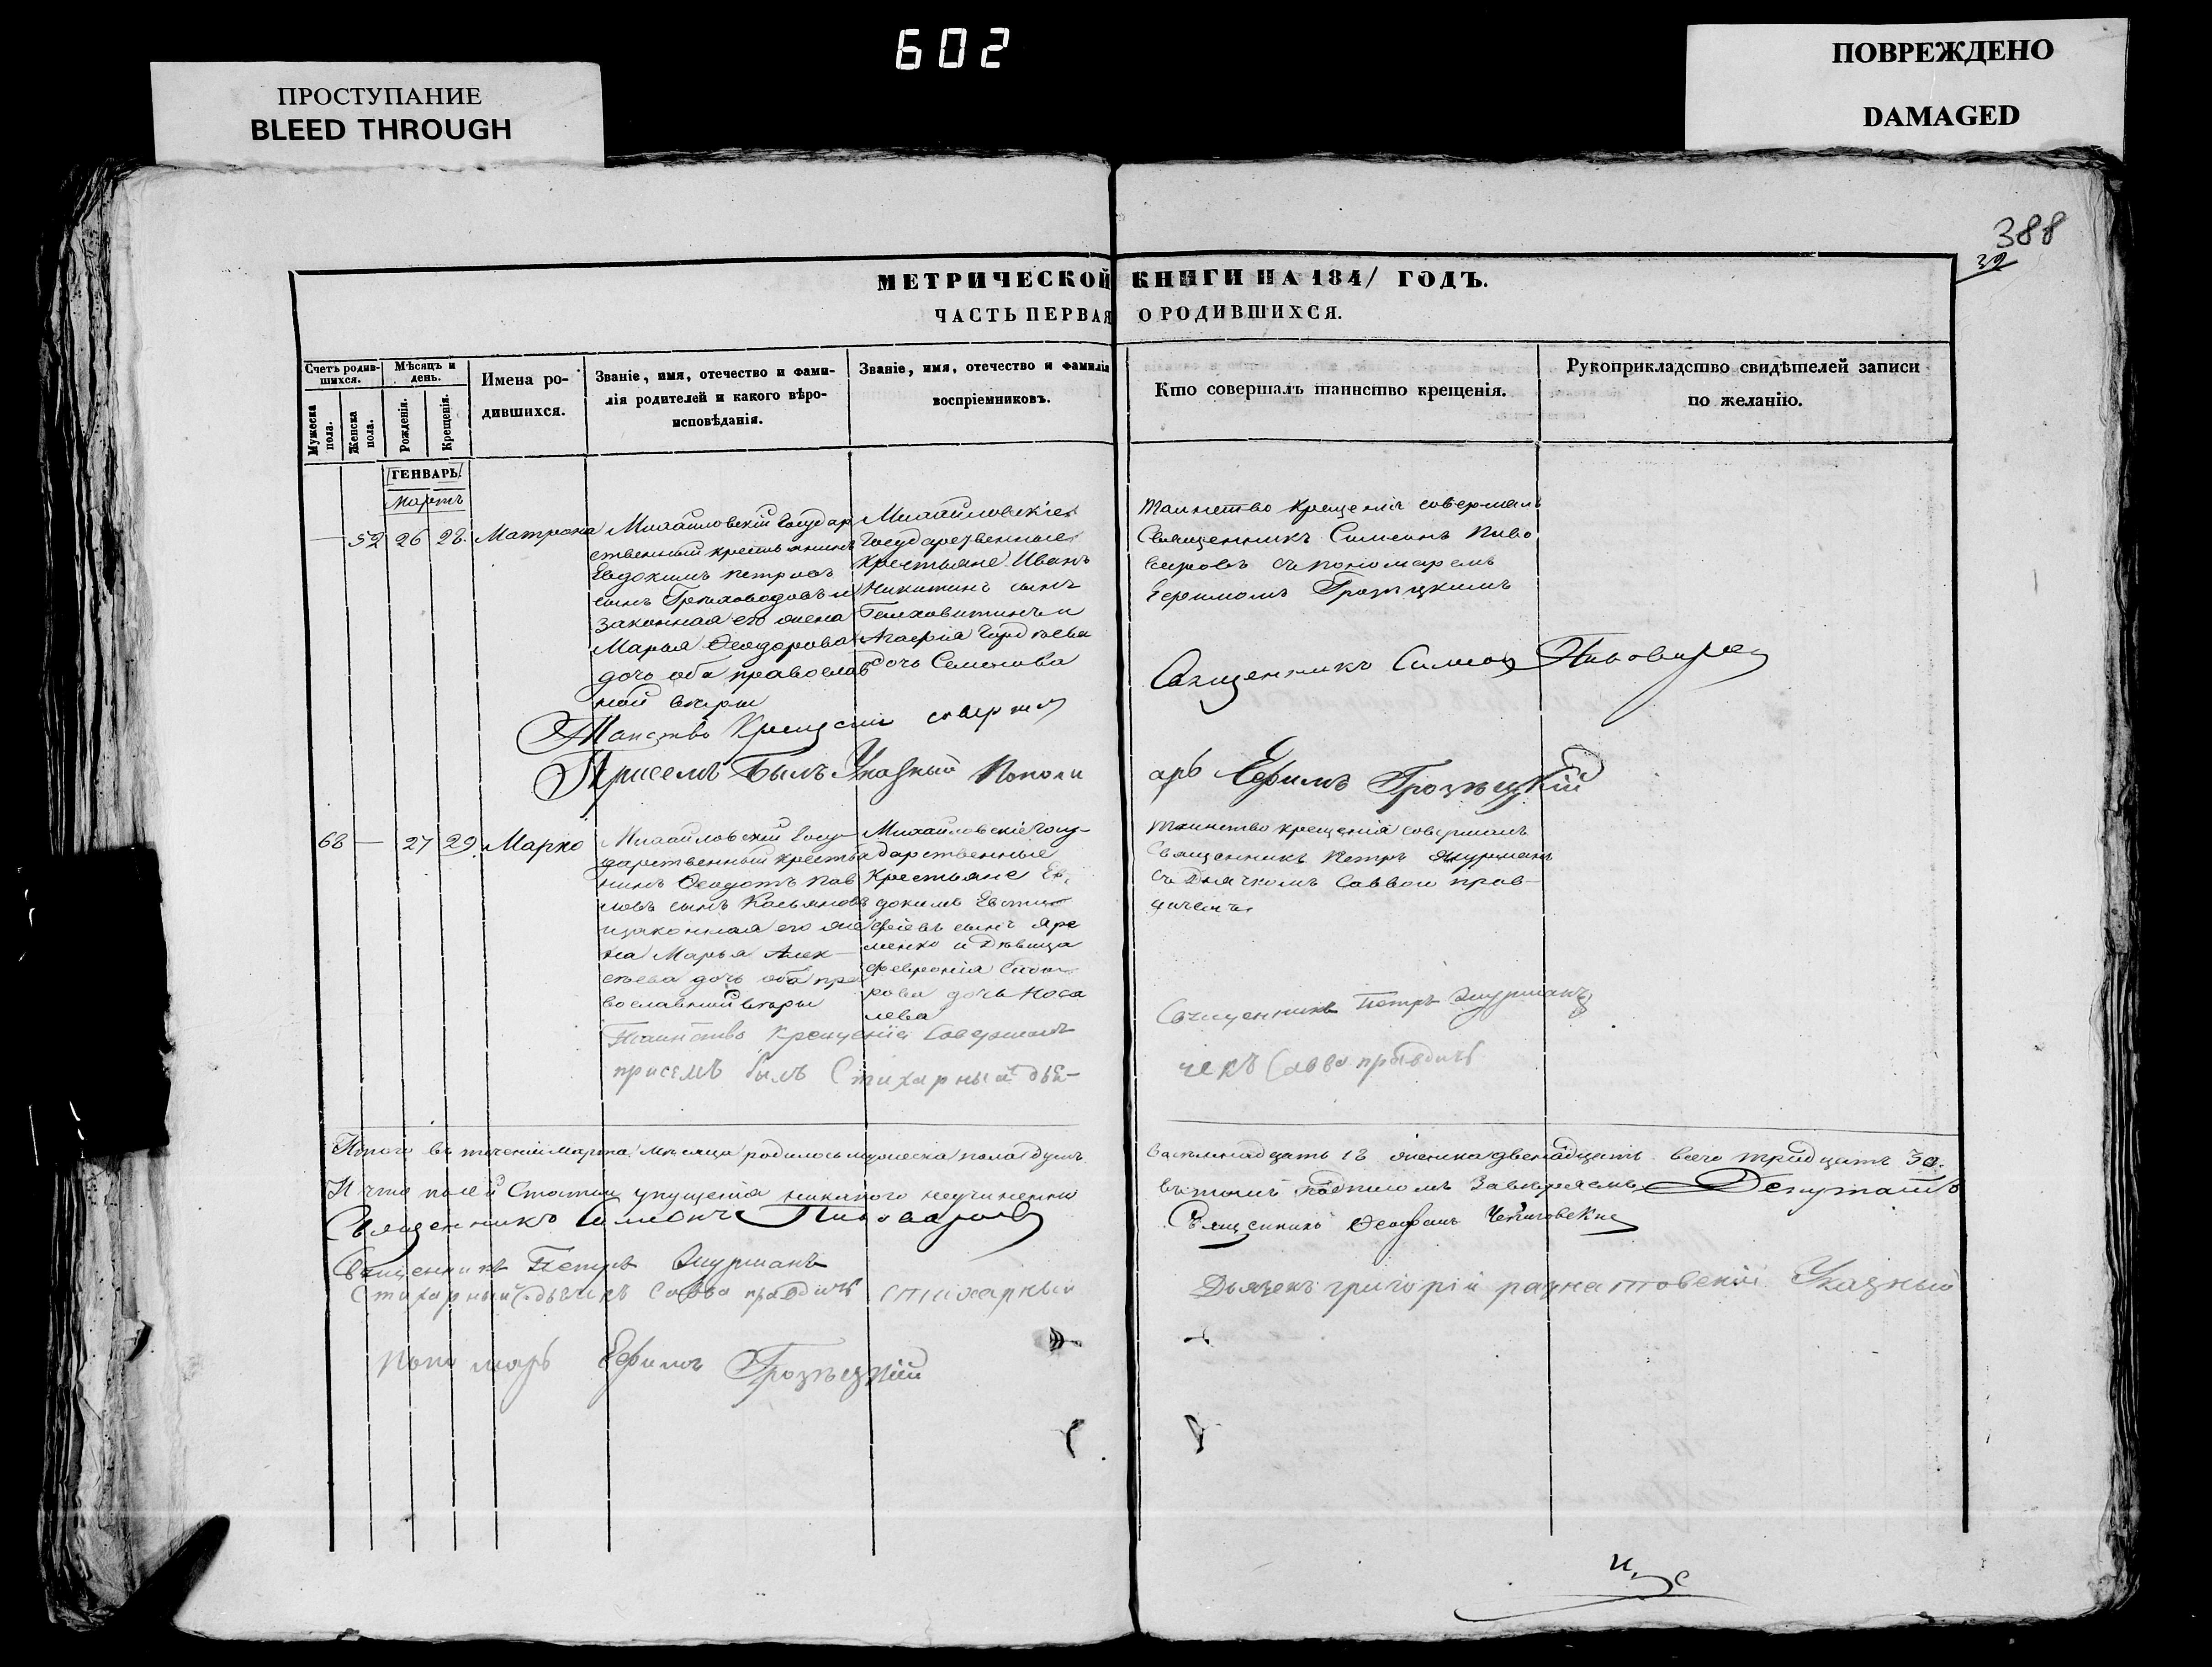 602
ПРОСТУПАНИЕ
BLEED THROUGH
ПОВРЕЖДЕНО
DAMAGED
388
39
МЕТРИЧЕСКОЙ КНИГИ НА 1841 ГОДЪ.
ЧАСТЬ ПЕРВАЯ О РОДИВШИХСЯ.
Счетъ родив-
шихся.
Мужеска
пола.
Женска
пола.
Мѣсяцъ и
день.
Рожденія.
Крещенія.
Имена ро-
дившихся.
Званіе, имя, отечество и фами-
лія родителей и какого вѣро-
исповѣданія.
Званіе, имя, отечество и фамилія
воспріемниковъ.
Кто совершалъ таинство крещенія.
Рукоприкладство свидѣтелей записи
по желанію.
ГЕНВАРЬ
Мартъ
— 52 26 28. Матрона
Михайловскій Государ
ственный крестьянинъ
Евдокимъ Петровъ
сынъ и
законная его жена
Марья Ѳеодорова
дочь оба православ
ной вѣры
Михайловскіе
Государственные
крестьяне Иванъ
Никитинъ сынъ
и
Агафія
дочь Семенова
Таинство крещенія совершалъ
Священникъ Симеонъ Пиво
варовъ съ пономаремъ
Ефимомъ
Священникъ Симеонъ Пивоваровъ
Таинство Крещенія совершалъ
Присемъ былъ Указный Пономарь Ефимъ
68 — 27 29. Марко
Михайловскій Госу-
дарственный крестья
нинъ Ѳеодотъ Пав
ловъ сынъ Касьяновъ
и законная его же
на Марья Алек-
сѣева дочь оба пра
вославной вѣры
Михайловскіе Госу-
дарственные
крестьяне Ев
докимъ
сынъ Яре
менко и дѣвица
Февронія Сидо
рова дочь Коса
лева
Таинство крещенія совершалъ
Священникъ Петръ
съ дьячкомъ Саввою Прав-
дичемъ
Священникъ Петръ
Таинство Крещенія Совершалъ
присемъ былъ Стихарный дья-
чекъ Савва Правдичъ
Итого въ теченіи марта мѣсяца родилось мужеска пола душъ восемнадцать 18 женска двенадцать всего тридцать 30.
И что по сей Статьи упущенія никакого неучиненно въ томъ подписомъ Завѣряемъ Депутатъ
Священникъ Симеонъ Пивоваровъ Священникъ Ѳеофанъ
Священникъ Петръ
Стихарный дьячекъ Савва Правдичъ стихарный Дьячекъ Григорій Указный
пономарь Ефимъ